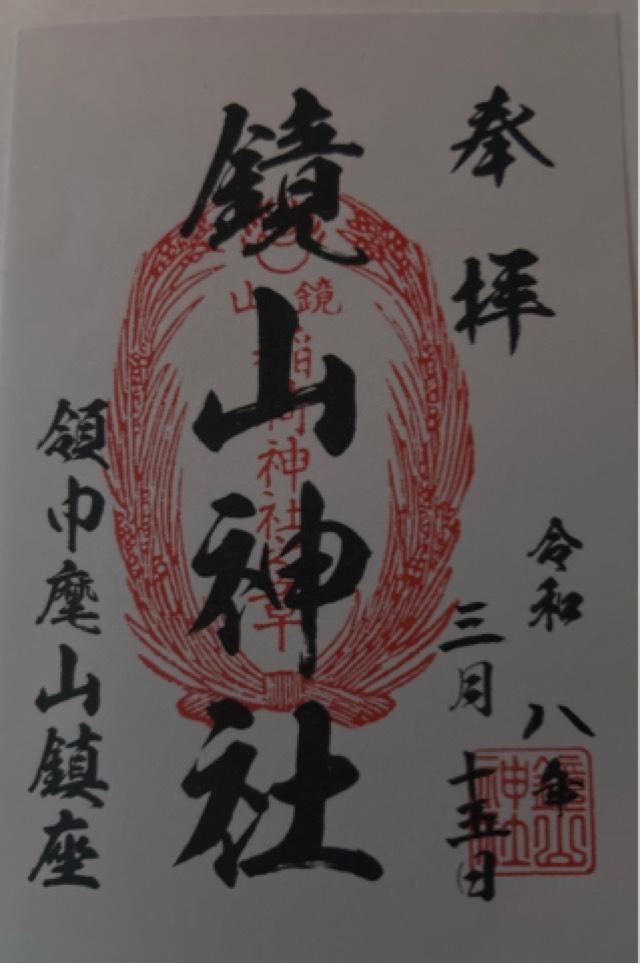 奉拝
令和八年
三月十五日
鏡山神社
領巾麾山鎮座
鏡山
稲荷神社之章
鏡山
神社